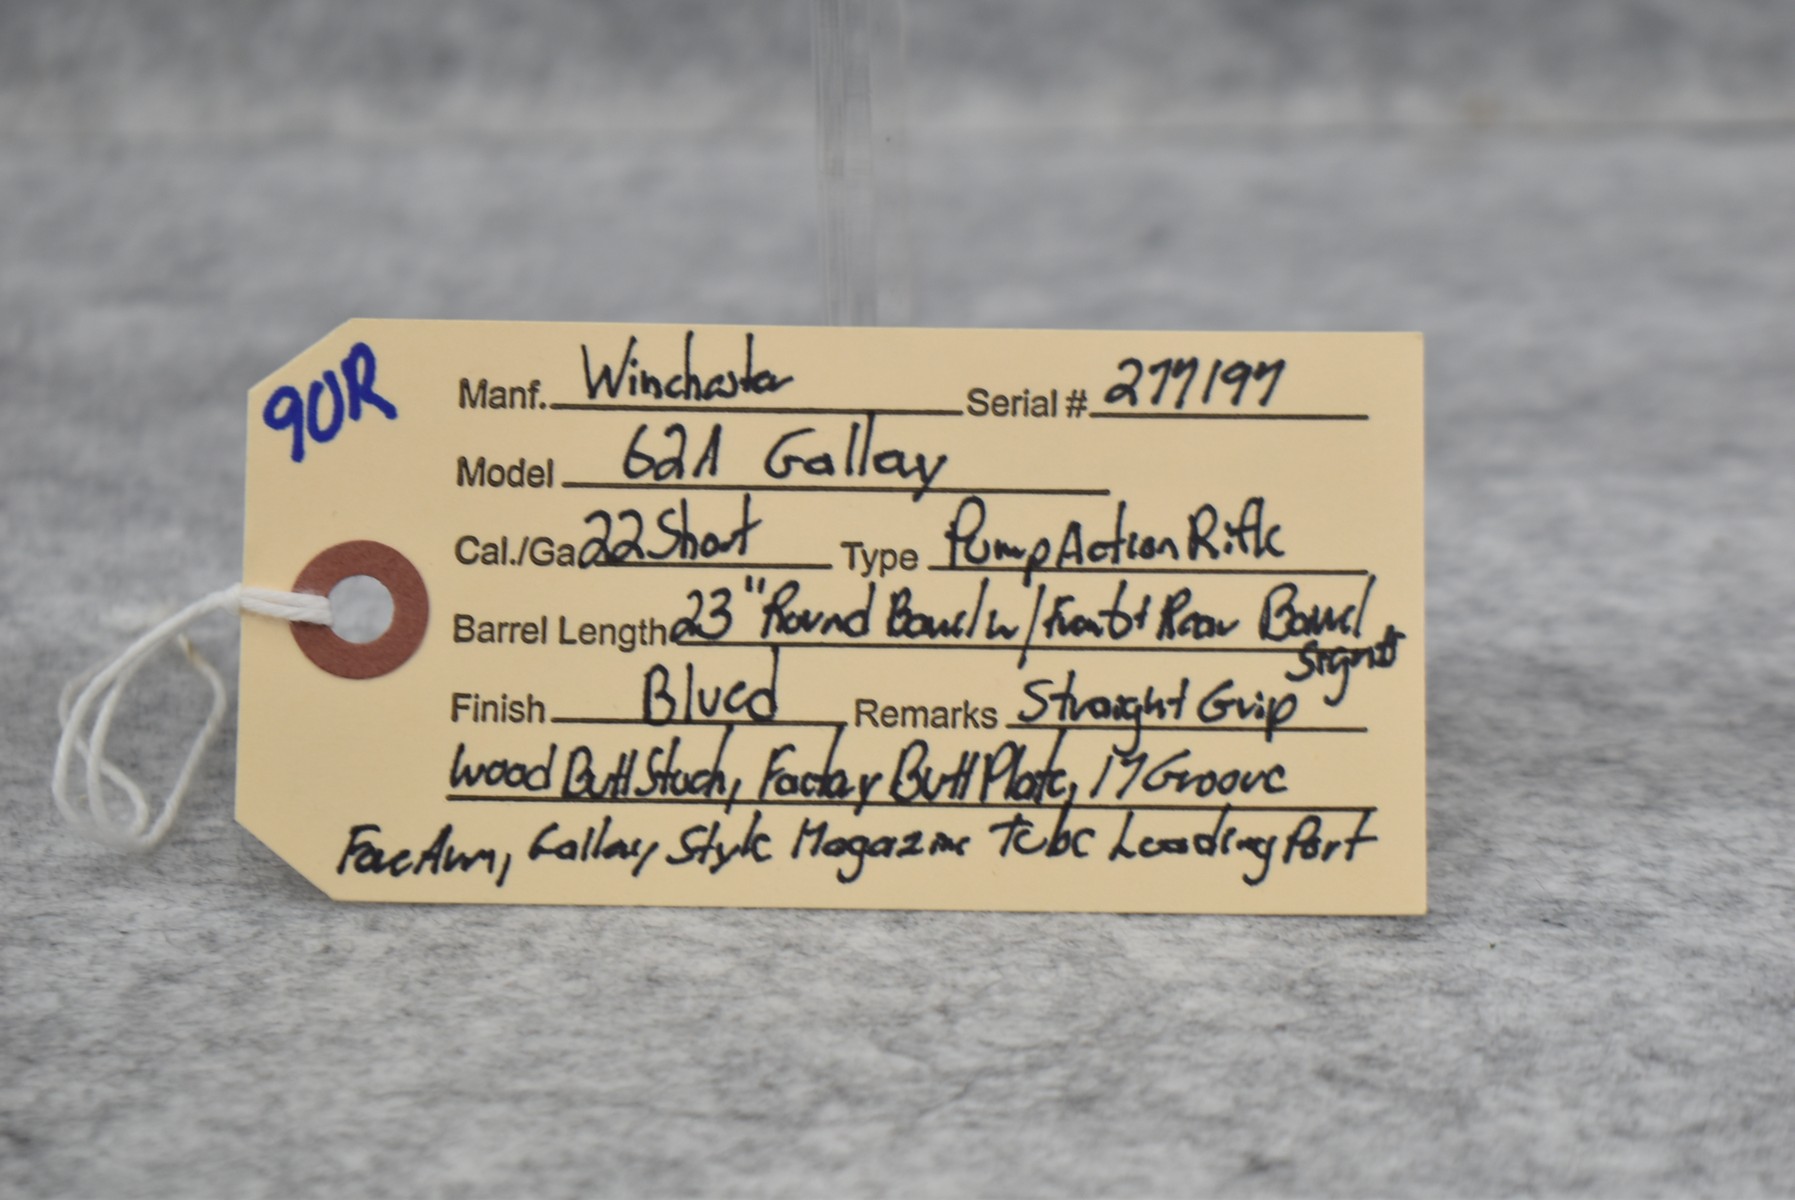 90R
Manf. Winchester Serial # 277197
Model 62A Gallery
Cal./Ga 22 Short Type Pump Action Rifle
Barrel Length 23" Round Barrel w/ Front & Rear Barrel
Sights
Finish Blued Remarks Straight Grip
Wood Butt Stock, Factory Butt Plate, 17 Groove
ForeArm, Gallery Style Magazine Tube Loading Port